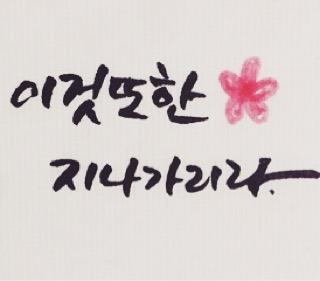 이것또한
지나가리라.